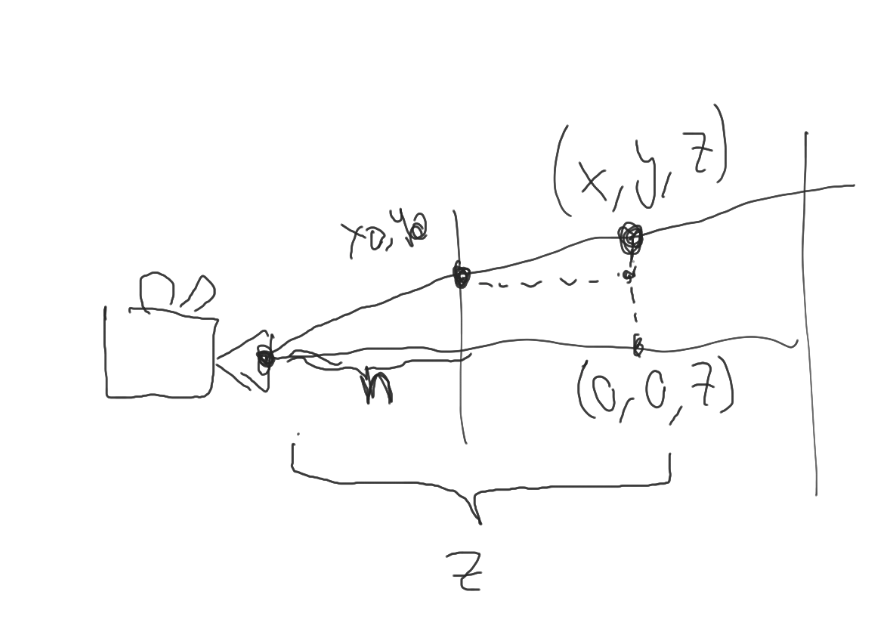 (x, y, z)
x0, y0
n
(0, 0, z)
z